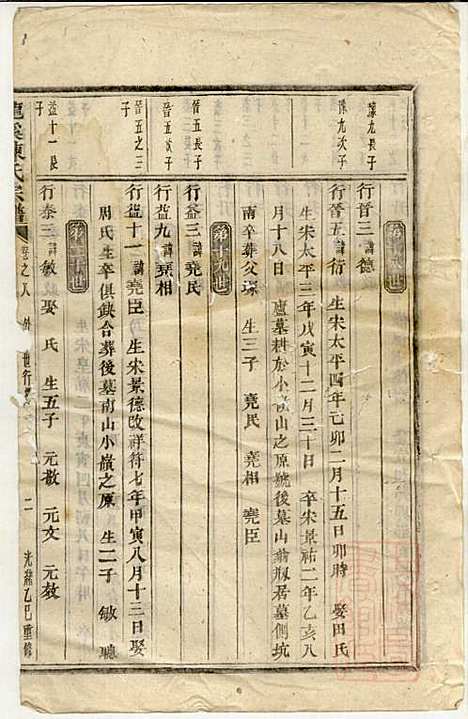 豫九長子
行晉三諱德
豫九次子
行晉五諱衍 生宋太平四年己卯二月十五日卯時 娶田氏
生宋太平三年戊寅十二月三十日 卒宋景祐二年乙亥八
月十八日 廬墓耕於小嶺山之原號後墓山 瓶居墓側坑
南卒葬父 生三子 堯民 堯相 堯臣
第十九世
晉五長子
行益三諱堯民
晉五次子
行益九諱堯相
晉五之三子
行益十一諱堯臣 生宋景德改祥符七年甲寅八月十三日娶
周氏生卒俱缺合葬後墓南山小嶺之原 生二子 敏 聽
第二十世
益十一長子
行泰三諱敏娶 氏 生五子 元敖 元文 元教
陳氏宗譜 卷之八 外 世行 二 光緒乙巳重修